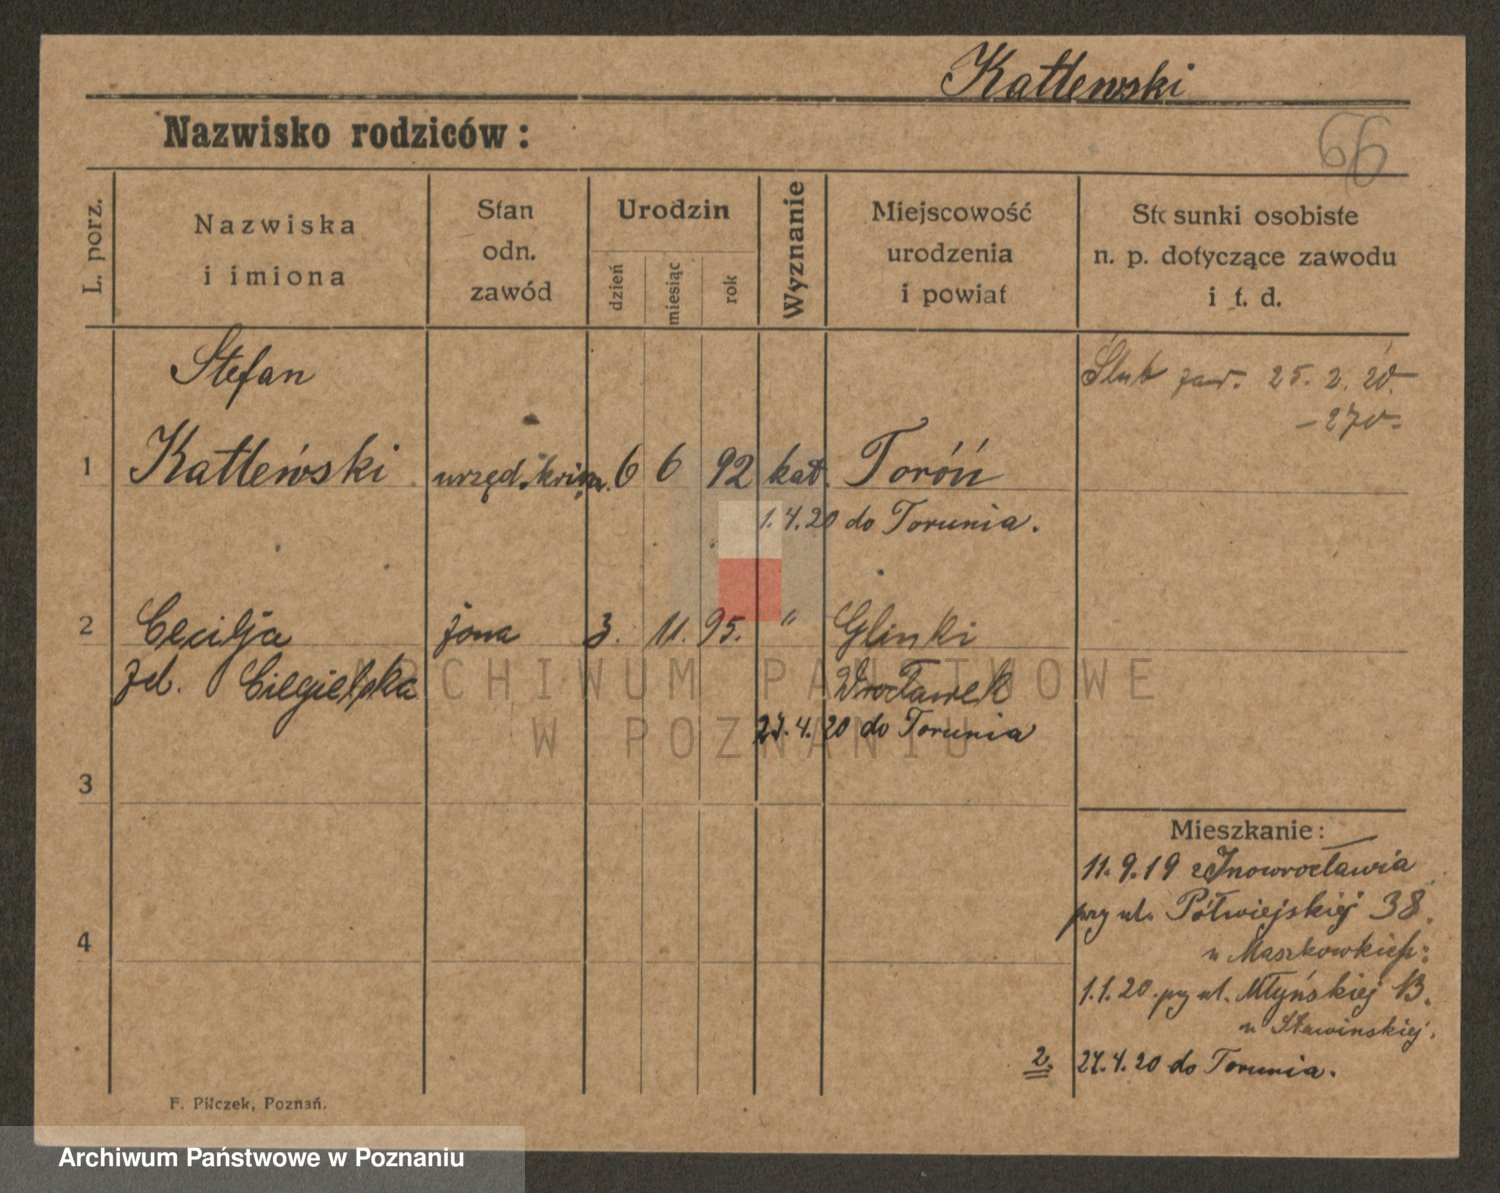 Kattewski
Nazwisko rodziców:
66
L. porz.
Nazwiska
i imiona
Stan
odn.
zawód
Urodzin
dzień
miesiąc
rok
Wyznanie
Miejscowość
urodzenia
i powiat
Stosunki osobiste
n. p. dotyczące zawodu
i t. d.
Stefan
Ślub zaw. 25. 2. 20.
- 270 -
1 Kattewski urzęd. krim. 6 6 92 kat. Toróń
1.4.20 do Torunia.
2 Cecilja żona 3. 11. 95. " Glinki
zd. Ciegielska Wrocławek
27.4.20 do Torunia
3
Mieszkanie:
11.9.19 z Inowrocławia
przy ul. Półwiejskiej 38.
u Maszkowskiej:
4
1.1.20. przy ul. Młyńskiej 13.
u Sławinskiej.
2. 27.4.20 do Torunia.
F. Pilczek, Poznań.
ARCHIWUM PAŃSTWOWE
W POZNANIU
Archiwum Państwowe w Poznaniu